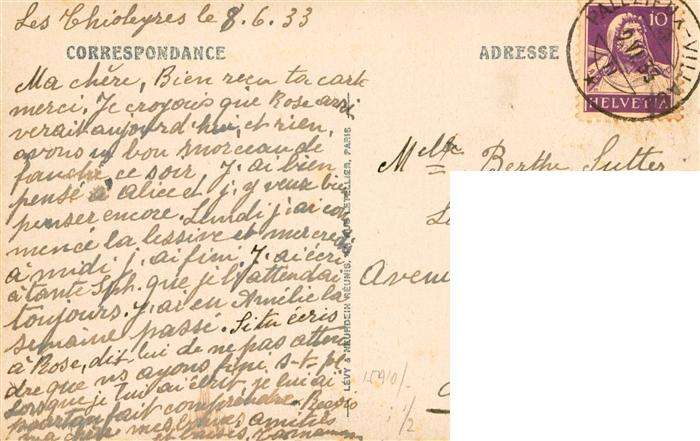 Les Thioleyres le 8.6.33
CORRESPONDANCE
ADRESSE
10
HELVETIA
Ma chère, Bien reçu ta carte
merci. Je croyais que Rose arri
verait aujourd'hui, et rien,
avons un bon morceau de
fauché ce soir. J'ai bien
pensé à Alice et j'y veux bien
penser encore. Lundi j'ai com
mencé la lessive et mercredi
à midi j'ai fini. J'ai écri
à tante Sph. que je l'attendai
toujours. J'ai eu Amélie la
semaine passé. Si tu écris
à Rose, dit lui de ne pas atten
dre que ns ayons fini, s-t-pl
lorsque je lui ai écrit je lui ai
pourtan fait comprendre.
ma chère mes amitiés
et baises
Melle Berthe Sutter
Aven
LÉVY & NEURDEIN RÉUNIS, LETELLIER, PARIS
1/2